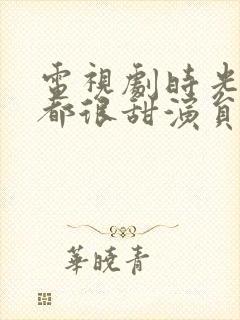 電視劇時光
都很甜演員
華曉青